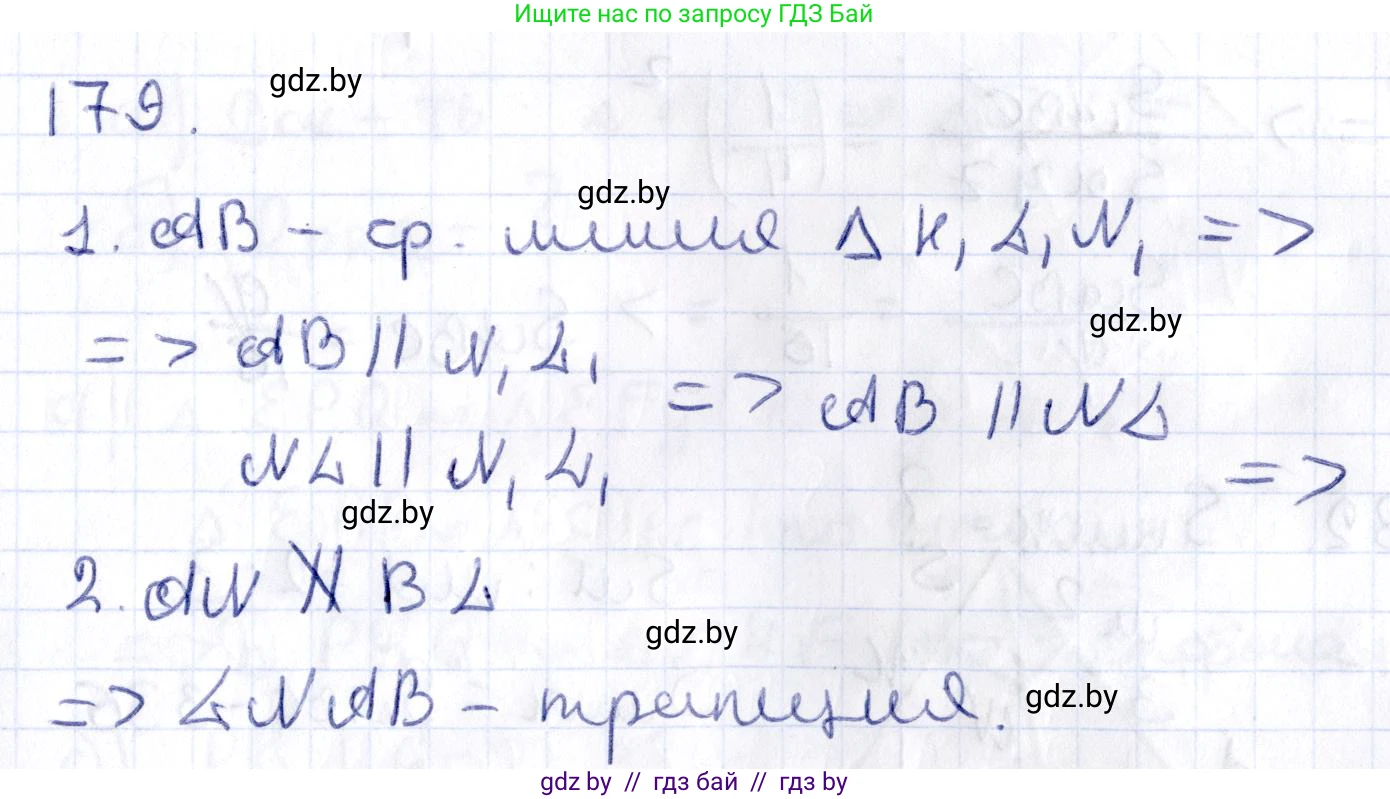 Ищите нас по запросу ГДЗ Бай
179.
gdz.by
gdz.by
1. AB - ср. линия Δ K₁ L₁ N₁ =>
gdz.by
=> AB || N₁ L₁
=> AB || NL
NL || N₁ L₁
=>
gdz.by
2. AN ∦ BL
gdz.by
=> LNAB - трапеция.
gdz.by
gdz by // гдз бай // гдз by